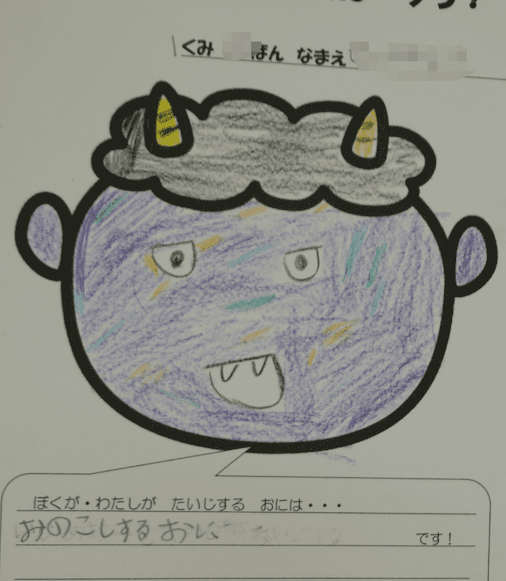 くみ ばん なまえ
ぼくが・わたしが たいじする おには・・・
おのこしする おに
です!